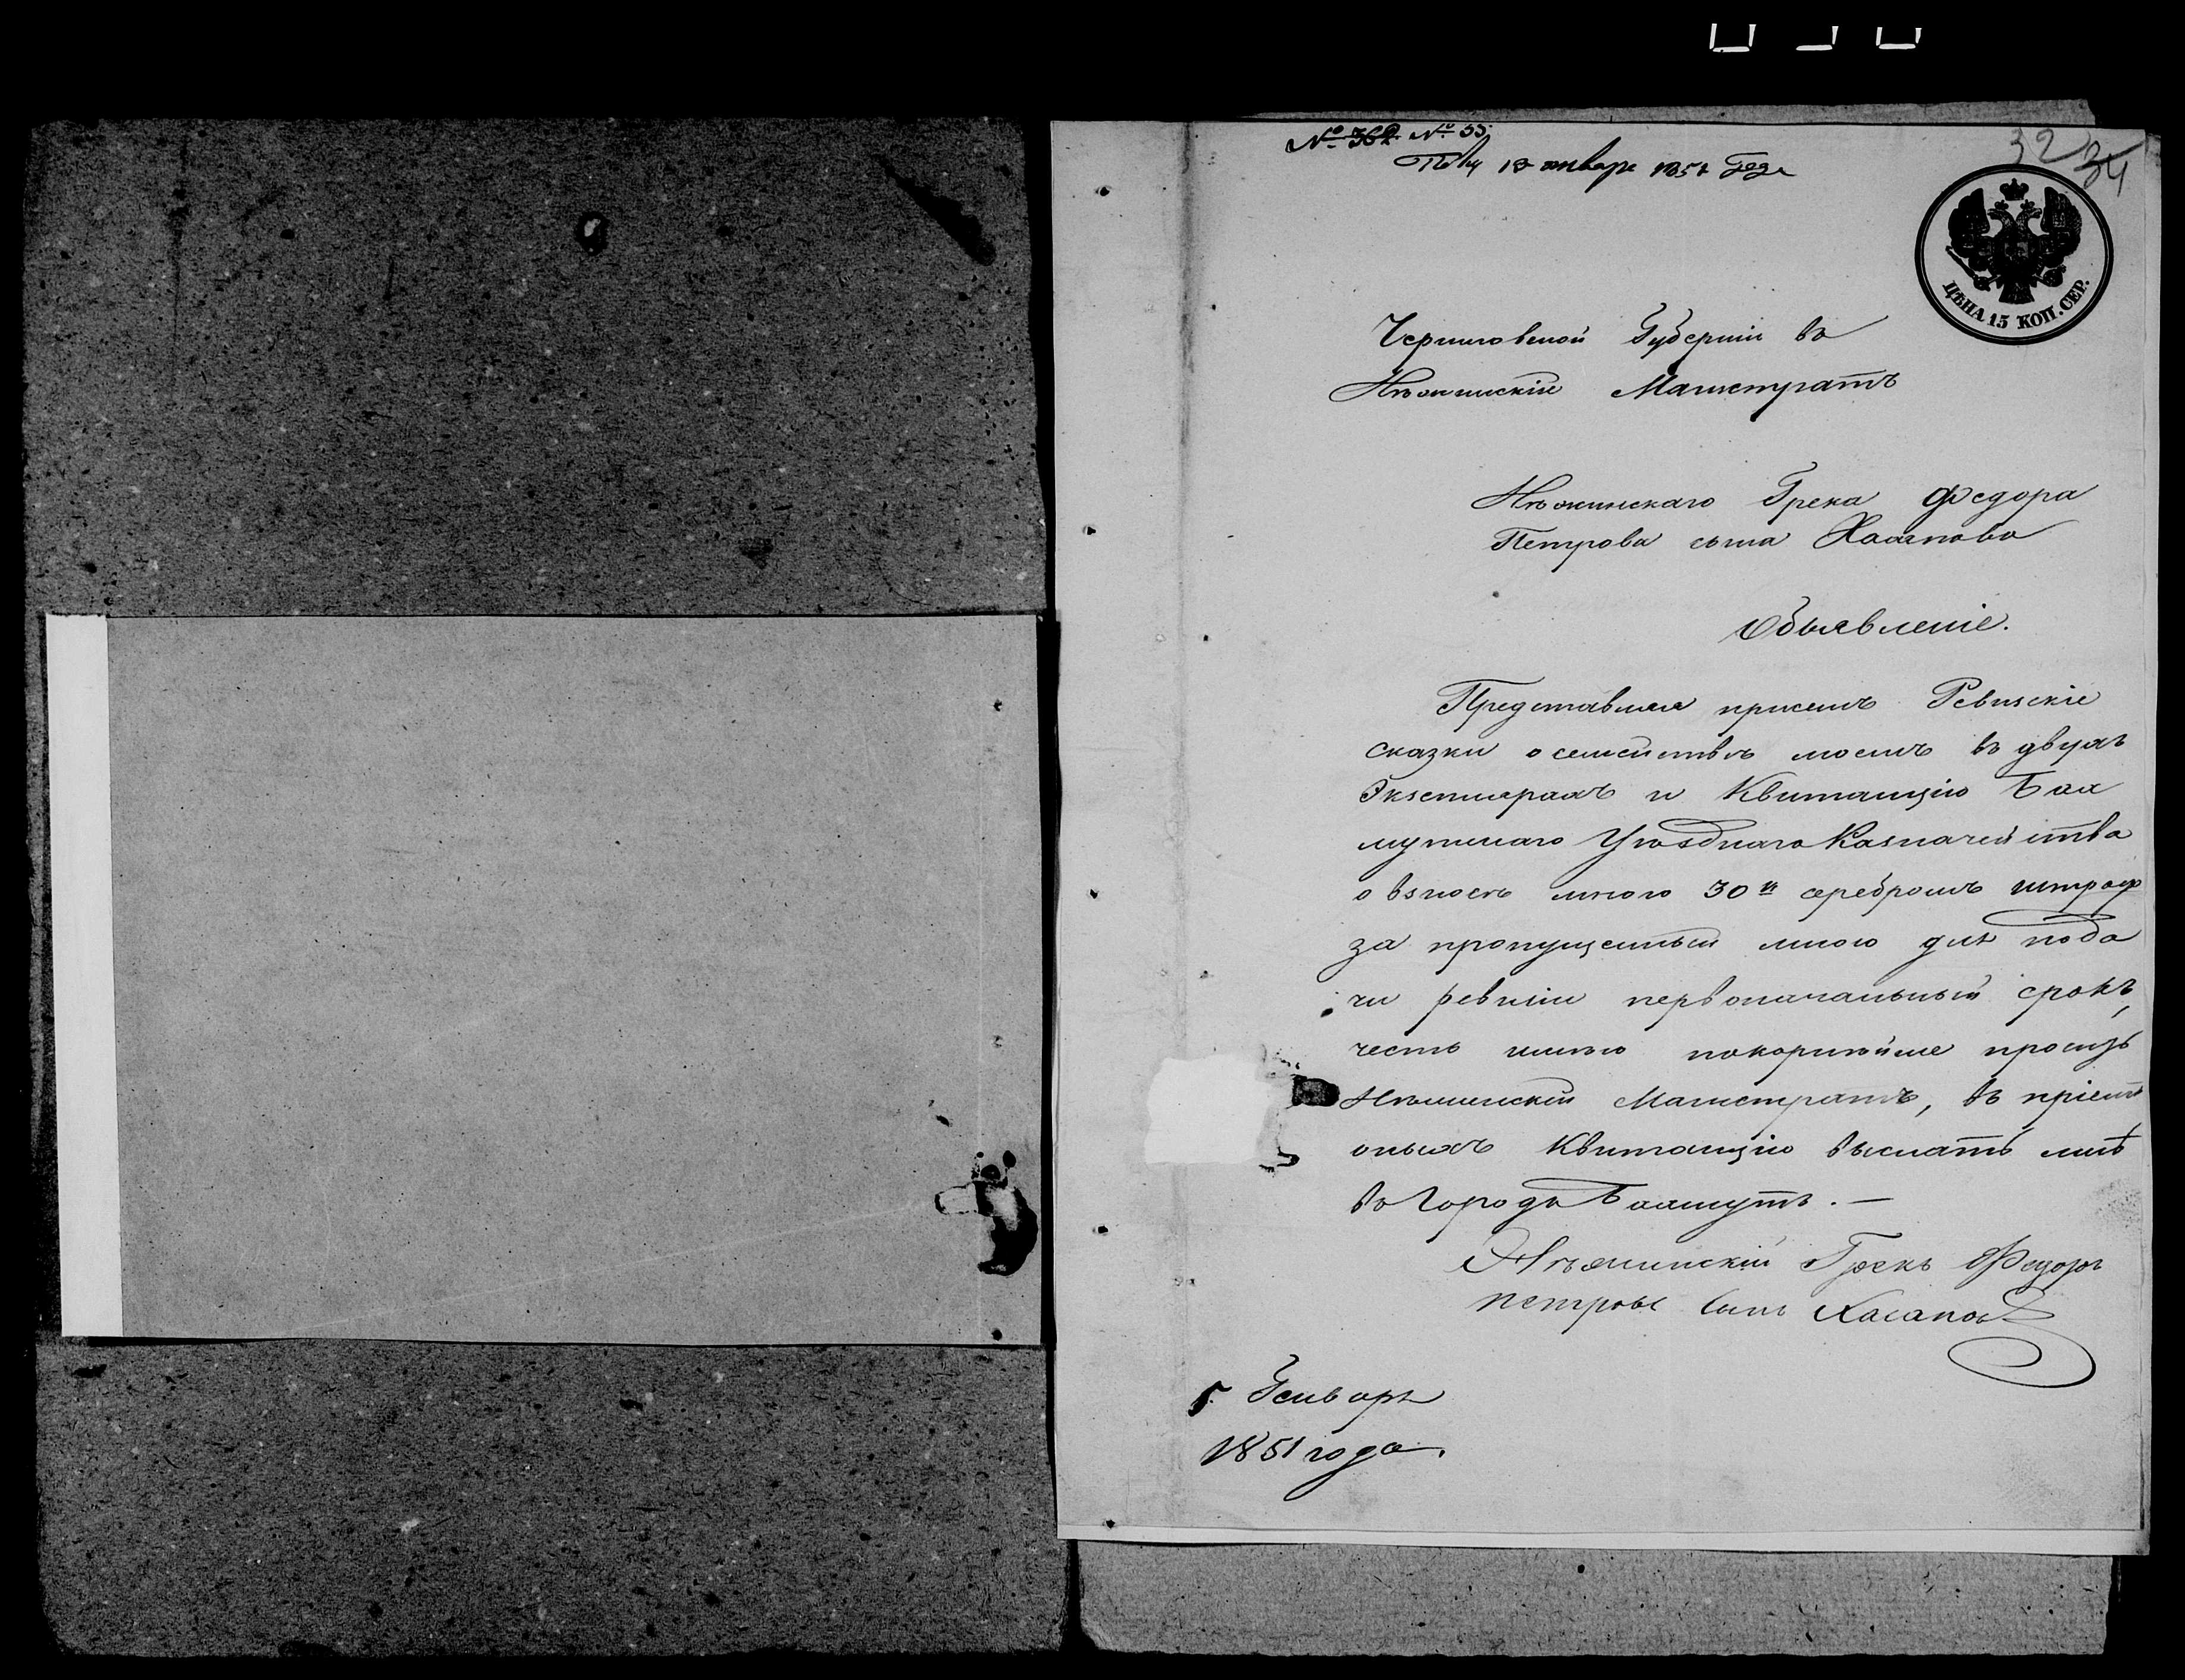 № 362. № 55.
13 января 1851 Года
32
34
ЦѢНА 15 КОП. СЕР.
Черниговской Губерніи въ
Нѣжинскій Магистратъ
Нѣжинскаго Грека Федора
Петрова сына Хасапова
Объявленіе.
Представляя присемъ Ревизскіе
сказки о семействѣ моемъ въ двухъ
Экземплярахъ и Квитанцію Бах
мутскаго Уѣзднаго Казначейства
о взносѣ мною 30 к серебромъ штраф
за пропущенный мною для пода
чи ревизіи первоначальный срокъ,
честь имѣю покорнѣйше просить
Нѣжинскій Магистратъ, въ пріемѣ
оныхъ Квитанцію выслать мнѣ
въ Городъ Бахмутъ. —
Нѣжинскій Грекъ Федоръ
Петровъ сынъ Хасапов
5. Генваря
1851 года.